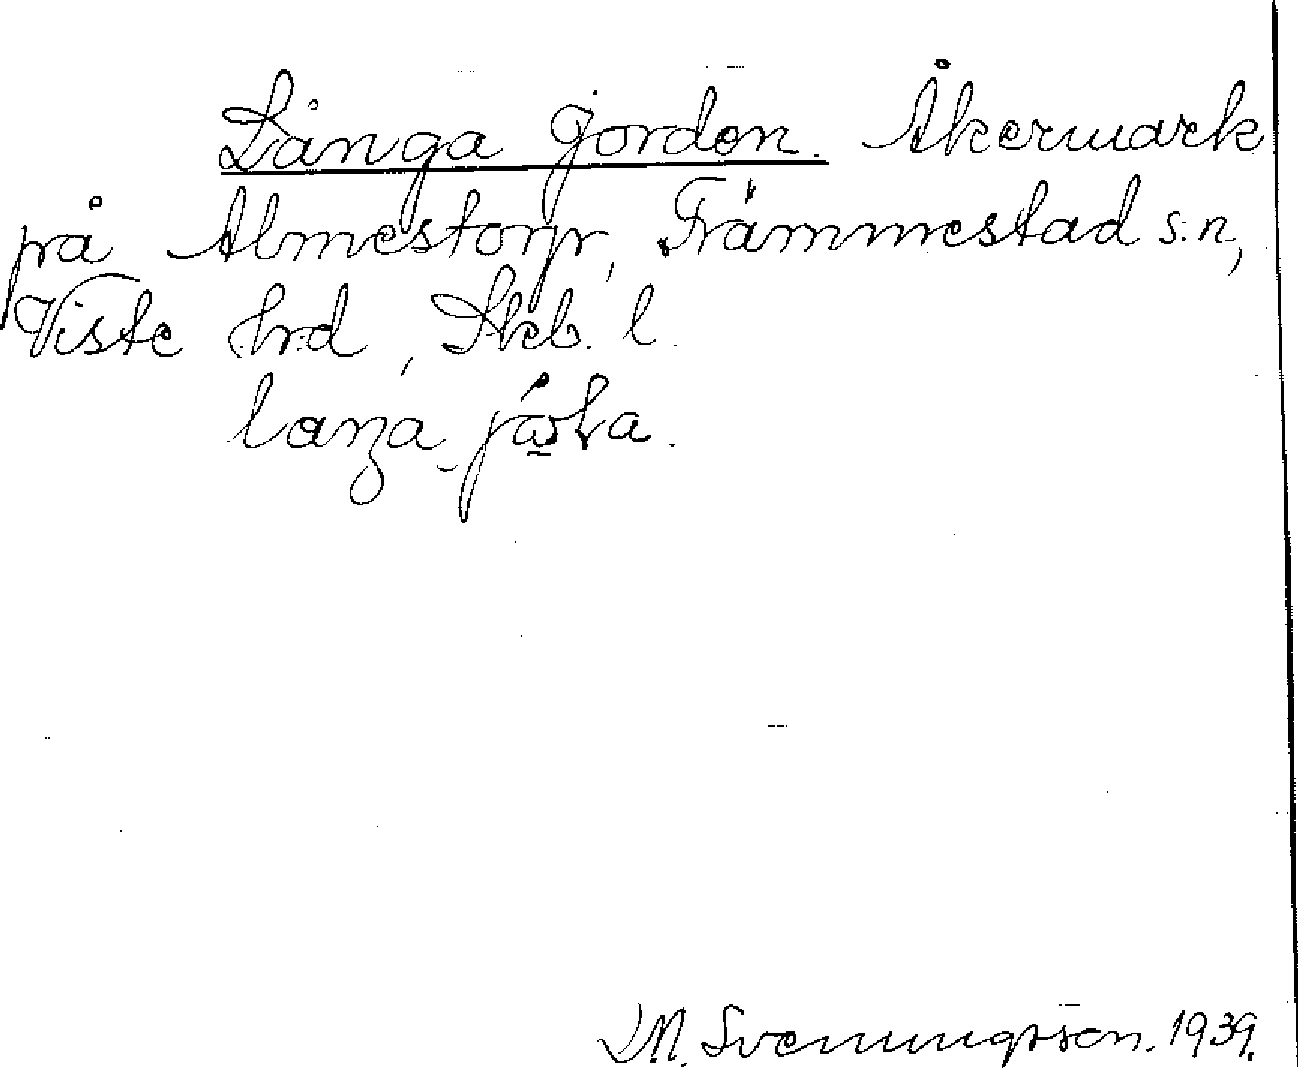 Långa jorden. Åkermark
på Almestorp, Främmestad s:n,
Viste hrd, Skb. l.
M. Svenungsson. 1939.